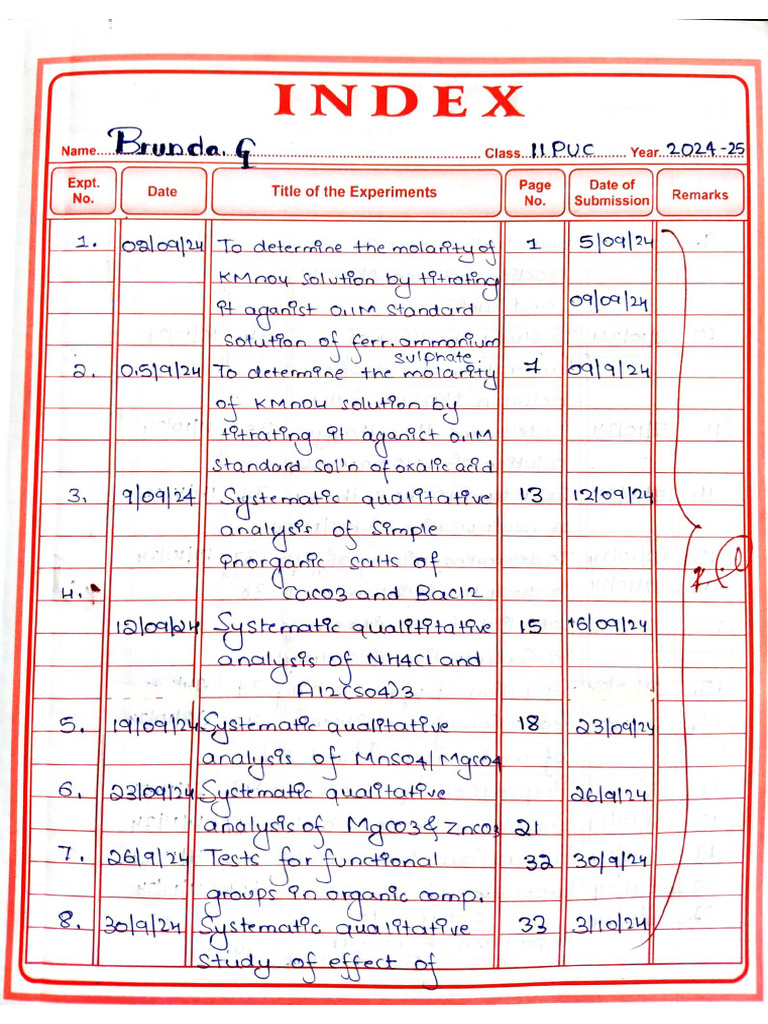 INDEX
Name Brunda. G Class 11 PUC Year 2024-25
Expt. No. Date Title of the Experiments Page No. Date of Submission Remarks
1. 02/09/24 To determine the molarity of 1 5/09/24
KMnO4 solution by titrating
it aganist 0.1M standard 09/09/24
solution of ferr. ammonium
sulphate.
2. 0.5/9/24 To determine the molarity 7 09/9/24
of KMnO4 solution by
titrating it aganict 0.1M
standard sol'n of oxalic acid
3. 9/09/24 Systematic qualitative 13 12/09/24
analysis of simple
inorganic salts of
4. CaCO3 and BaCl2
12/09/24 Systematic qualititative 15 16/09/24
analysis of NH4Cl and
Al2(SO4)3
5. 19/09/24 Systematic qualitative 18 23/09/24
analysis of MnSO4/MgSO4
6. 23/09/24 Systematic qualitative 26/9/24
analysis of MgCO3 & ZnCO3 21
7. 26/9/24 Tests for functional 32 30/9/24
groups in organic comp.
8. 30/9/24 Systematic qualitative 33 3/10/24
study of effect of